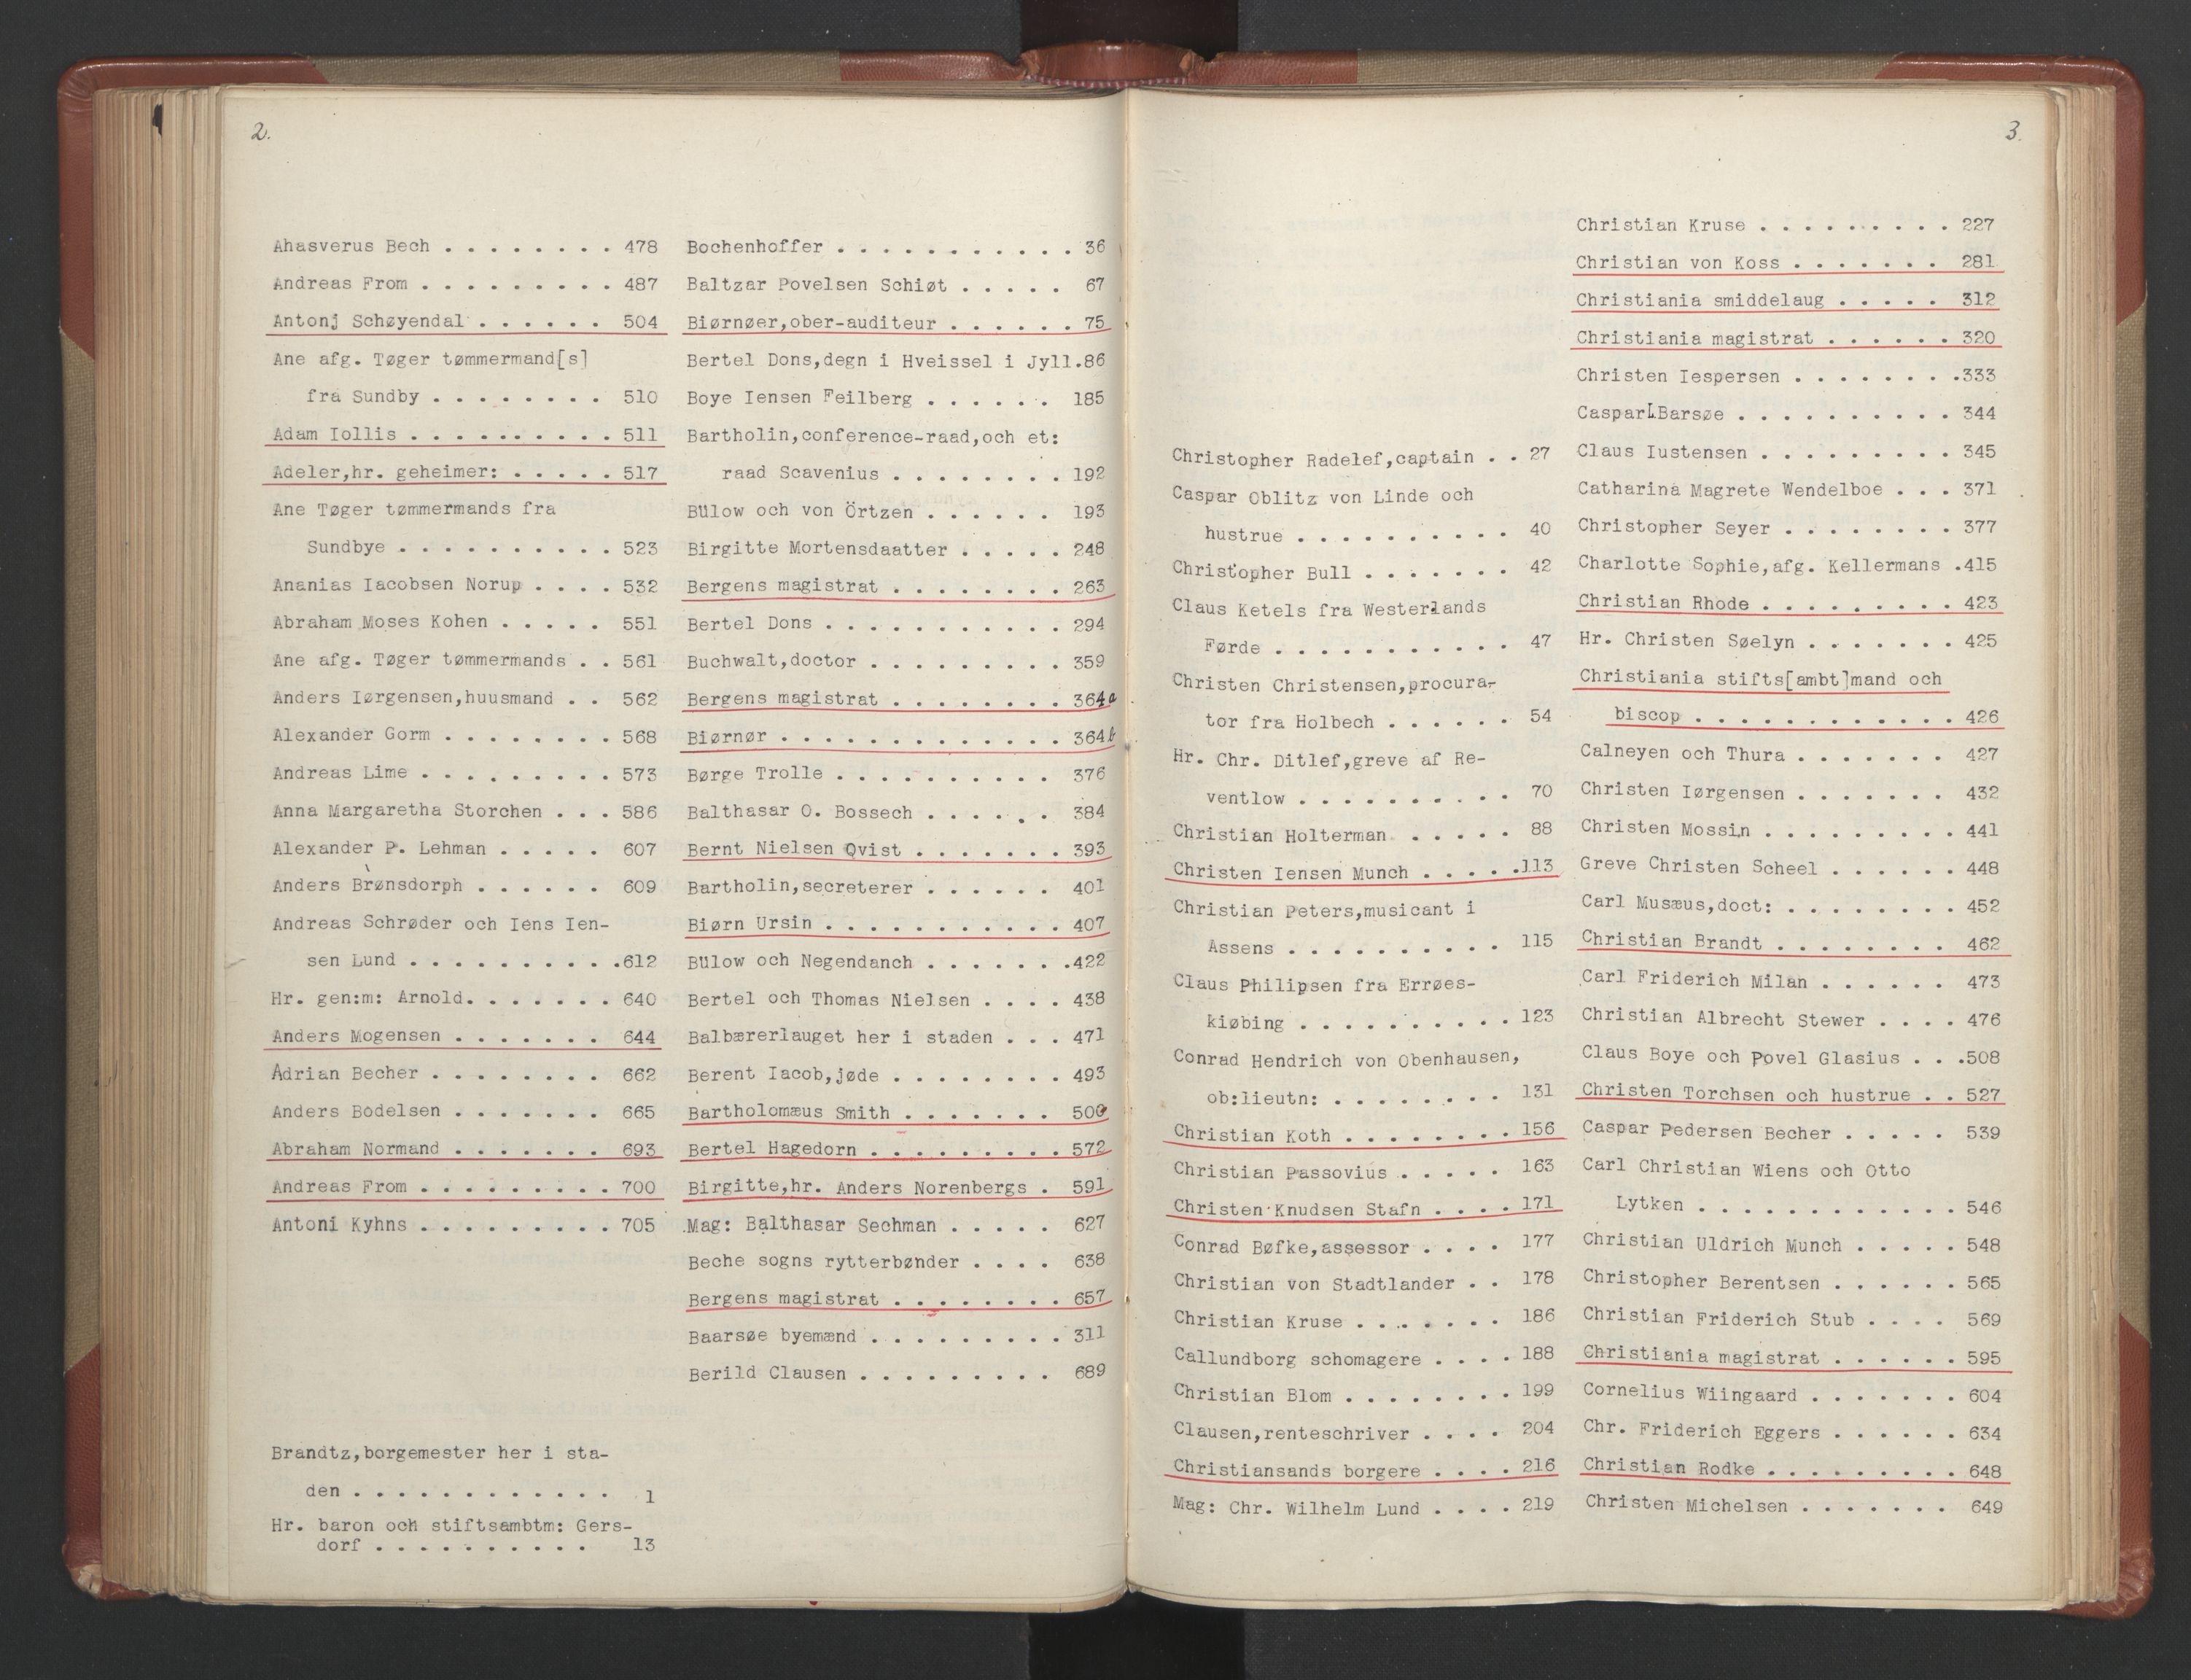 2.
Ahasverus Bech . . . . . . . . 478
Andreas From . . . . . . . . . 487
Antonj Schøyendal . . . . . . 504
Ane afg. Tøger tømmermand[s]
fra Sundby . . . . . . . . 510
Adam Iollis . . . . . . . . . . 511
Adeler,hr. geheimer: . . . . . 517
Ane Tøger tømmermands fra
Sundbye . . . . . . . . . . 523
Ananias Iacobsen Norup . . . . 532
Abraham Moses Kohen . . . . . 551
Ane afg. Tøger tømmermands . . 561
Anders Iørgensen,huusmand . . 562
Alexander Gorm . . . . . . . . 568
Andreas Lime . . . . . . . . . 573
Anna Margaretha Storchen . . . 586
Alexander P. Lehman . . . . . 607
Anders Brønsdorph . . . . . . 609
Andreas Schrøder och Iens Ien-
sen Lund . . . . . . . . . .612
Hr. gen:m: Arnold. . . . . . . 640
Anders Mogensen . . . . . . . 644
Adrian Becher . . . . . . . . 662
Anders Bodelsen . . . . . . . 665
Abraham Normand . . . . . . . 693
Andreas From . . . . . . . . . 700
Antoni Kyhns . . . . . . . . . 705
Brandtz,borgemester her i sta-
den . . . . . . . . . . . . 1
Hr. baron och stiftsambtm: Gers-
dorf . . . . . . . . . . 13
Bochenhoffer . . . . . . . . . . . 36
Baltzar Povelsen Schiøt . . . . . 67
Biørnøer,ober-auditeur . . . . . . 75
Bertel Dons,degn i Hveissel i Jyll.86
Boye Iensen Feilberg . . . . . . 185
Bartholin,conference-raad,och et:
raad Scavenius . . . . . . . . 192
Bülow och von Örtzen . . . . . . 193
Birgitte Mortensdaatter . . . . . 248
Bergens magistrat . . . . . . . . 263
Bertel Dons . . . . . . . . . . . 294
Buchwalt,doctor . . . . . . . . . 359
Bergens magistrat . . . . . . . . 364a
Biørnør . . . . . . . . . . . . . 364b
Børge Trolle . . . . . . . . . . 376
Balthasar O. Bossech . . . . . . 384
Bernt Nielsen Qvist . . . . . . . 393
Bartholin,secreterer . . . . . . 401
Biørn Ursin . . . . . . . . . . . 407
Bülow och Negendanch . . . . . . .422
Bertel och Thomas Nielsen . . . . 438
Balbærerlauget her i staden . . . 471
Berent Iacob,jøde . . . . . . . . 493
Bartholomæus Smith . . . . . . . 500
Bertel Hagedorn . . . . . . . . . 572
Birgitte,hr. Anders Norenbergs . 591
Mag: Balthasar Sechman . . . . . 627
Beche sogns rytterbønder . . . . 638
Bergens magistrat . . . . . . . . 657
Baarsøe byemænd . . . . . . . . . 311
Berild Clausen . . . . . . . . . 689
3.
Christopher Radelef,captain . . 27
Caspar Oblitz von Linde och
hustrue . . . . . . . . . . 40
Christopher Bull . . . . . . . 42
Claus Ketels fra Westerlands
Førde . . . . . . . . . . . 47
Christen Christensen,procura-
tor fra Holbech . . . . . . 54
Hr. Chr. Ditlef,greve af Re-
ventlow . . . . . . . . . . 70
Christian Holterman . . . . . 88
Christen Iensen Munch . . . . .113
Christian Peters,musicant i
Assens . . . . . . . . . . 115
Claus Philipsen fra Errøes-
kiøbing . . . . . . . . . . 123
Conrad Hendrich von Obenhausen,
ob:lieutn: . . . . . . . . 131
Christian Koth . . . . . . . . 156
Christian Passovius . . . . . 163
Christen Knudsen Stafn . . . . 171
Conrad Bøfke,assessor . . . . 177
Christian von Stadtlander . . 178
Christian Kruse . . . . . . . 186
Callundborg schomagere . . . . 188
Christian Blom . . . . . . . . 199
Clausen,renteschriver . . . . 204
Christiansands borgere . . . . 216
Mag: Chr. Wilhelm Lund . . . . 219
Christian Kruse . . . . . . . . . 227
Christian von Koss . . . . . . . 281
Christiania smiddelaug . . . . . 312
Christiania magistrat . . . . . . 320
Christen Iespersen . . . . . . . .333
Caspar L Barsøe . . . . . . . . . . 344
Claus Iustensen . . . . . . . . . 345
Catharina Magrete Wendelboe . . . 371
Christopher Seyer . . . . . . . . 377
Charlotte Sophie,afg. Kellermans .415
Christian Rhode . . . . . . . . . 423
Hr. Christen Søelyn . . . . . . . 425
Christiania stifts[ambt]mand och
biscop . . . . . . . . . . . . 426
Calneyen och Thura . . . . . . . 427
Christen Iørgensen . . . . . . . 432
Christen Mossin . . . . . . . . . 441
Greve Christen Scheel . . . . . . 448
Carl Musæus,doct: . . . . . . . . 452
Christian Brandt . . . . . . . . 462
Carl Friderich Milan . . . . . . 473
Christian Albrecht Stewer . . . . 476
Claus Boye och Povel Glasius . . .508
Christen Torchsen och hustrue . . 527
Caspar Pedersen Becher . . . . . 539
Carl Christian Wiens och Otto
Lytken . . . . . . . . . . . . 546
Christian Uldrich Munch . . . . . 548
Christopher Berentsen . . . . . . 565
Christian Friderich Stub . . . . 569
Christiania magistrat . . . . . . 595
Cornelius Wiingaard . . . . . . . 604
Chr. Friderich Eggers . . . . . . 634
Christian Rodke . . . . . . . . . 648
Christen Michelsen . . . . . . . 649